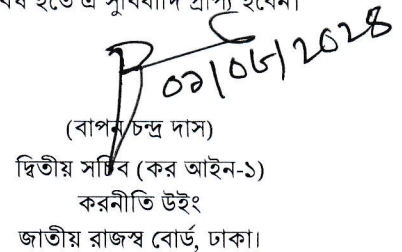 বর্ষ হতে এ সুবিধাদি প্রাপ্য হবেন।
০৯/০৬/২০২৪
(বাপন চন্দ্র দাস)
দ্বিতীয় সচিব (কর আইন-১)
করনীতি উইং
জাতীয় রাজস্ব বোর্ড, ঢাকা।